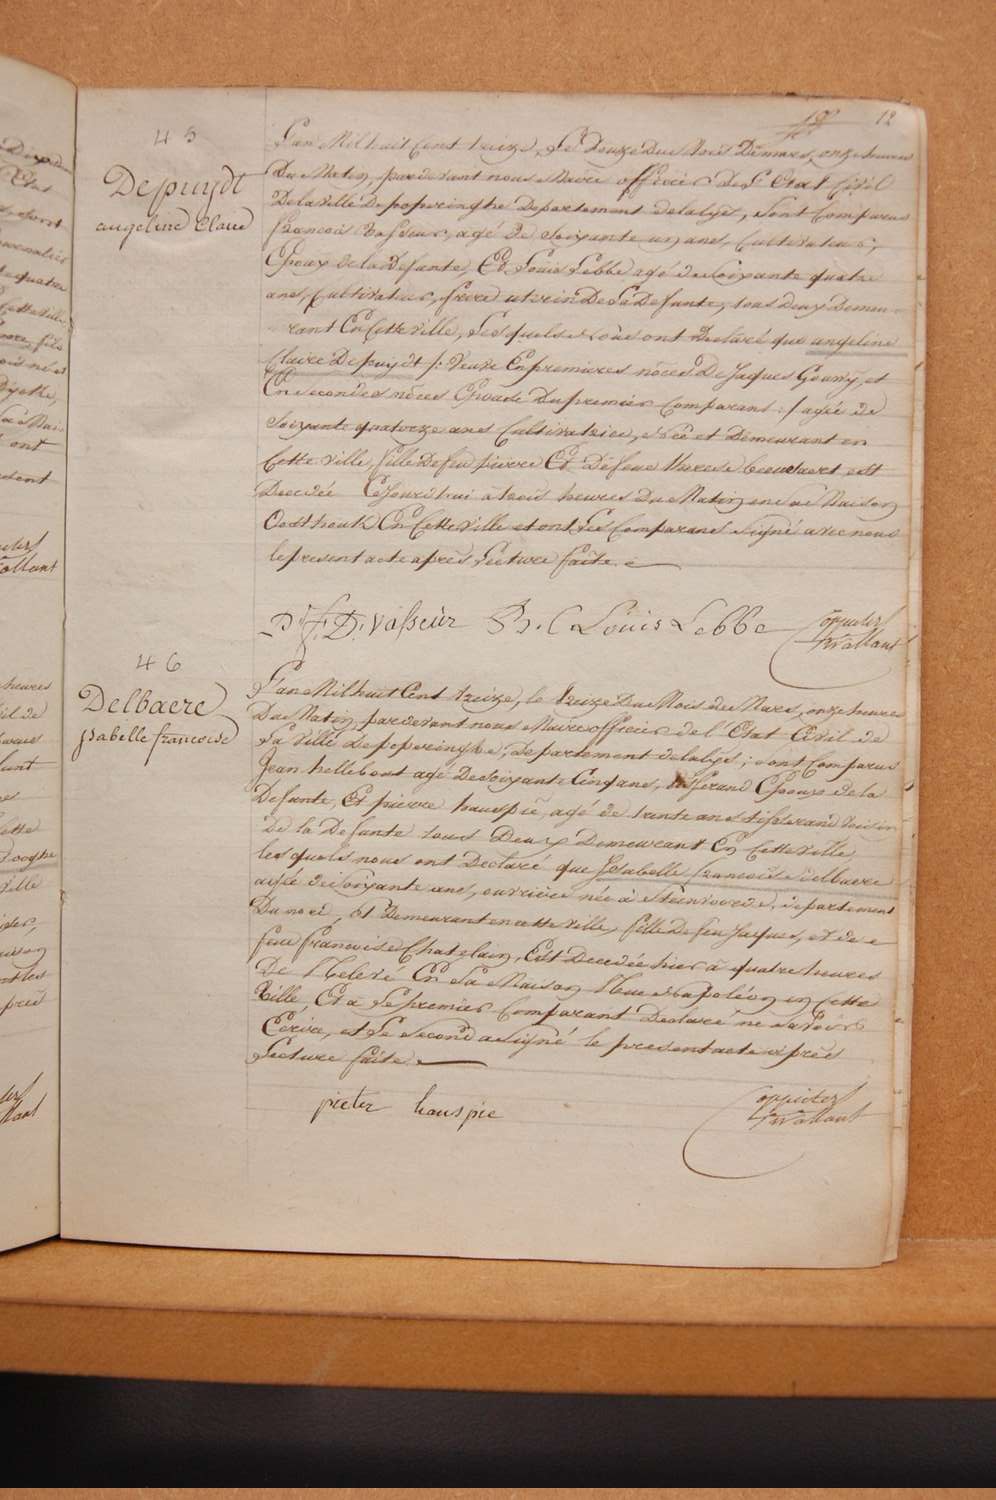 12
45
Depuydt
angeline Claire
L'an Mil huit Cent treize, Le Douze Du Mois De mars, onze heures
Du Matin, pardevant nous Maire officier De l'Etat Civil
De la ville De poperinghe Departement de la lys, Sont Comparus
francois Vasseur, agé De Soixante un ans, Cultivateur,
Epoux de la Defante, Et Louis Lebbe agé de Soixante quatre
ans, Cultivateur, frere uterin De La Defante, tous deux Demeu-
rant En Cette ville, Lesquels nous ont Declaré que angeline
Claire Depuydt /: Veuve En premieres nôces De Jaques Gouwy, et
En Secondes nôces Epouse Du premier Comparant :/ agée de
Soixante quatorze ans Cultivatrice, née et Demeurant en
Cette ville, fille De feu pierre Et De feue therese est
Decedée Cejourd'hui à trois heures Du Matin en sa Maison
Oosthouk En Cette ville et ont Les Comparans Signé avec nous
le present acte après Lecture faite.
D. F. D. Vasseur Louis Lebbe
46
Delbaere
isabelle francoise
L'an Mil huit Cent treize, le treize Du Mois de Mars, onze heures
Du Matin, pardevant nous Maire officier de l'Etat Civil de
La Ville De poperinghe, Departement de la lys, Sont Comparus
Jean hellebout agé De soixante Cinq ans, tisserand Epoux de la
Defante, Et pierre hauspie, agé de trente ans tisserand voisin
De la Defante tous Deux Demeurant En Cette ville,
lesquels nous ont Declaré que Isabelle francoise Delbaere
agée de Soixante ans, ouvriere née à Steenvorde, departement
Du nord, et Demeurant en cette ville, fille De feu Jaques, et de
feue francoise Chatelain, Est Decedée hier à quatre heures
De Relevé En Sa Maison Rue Napoléon en Cette
Ville, Et a Le premier Comparant Declaré ne savoir
Ecrire, et Le Second a Signé le present acte après
Lecture faite.
pieter hauspie